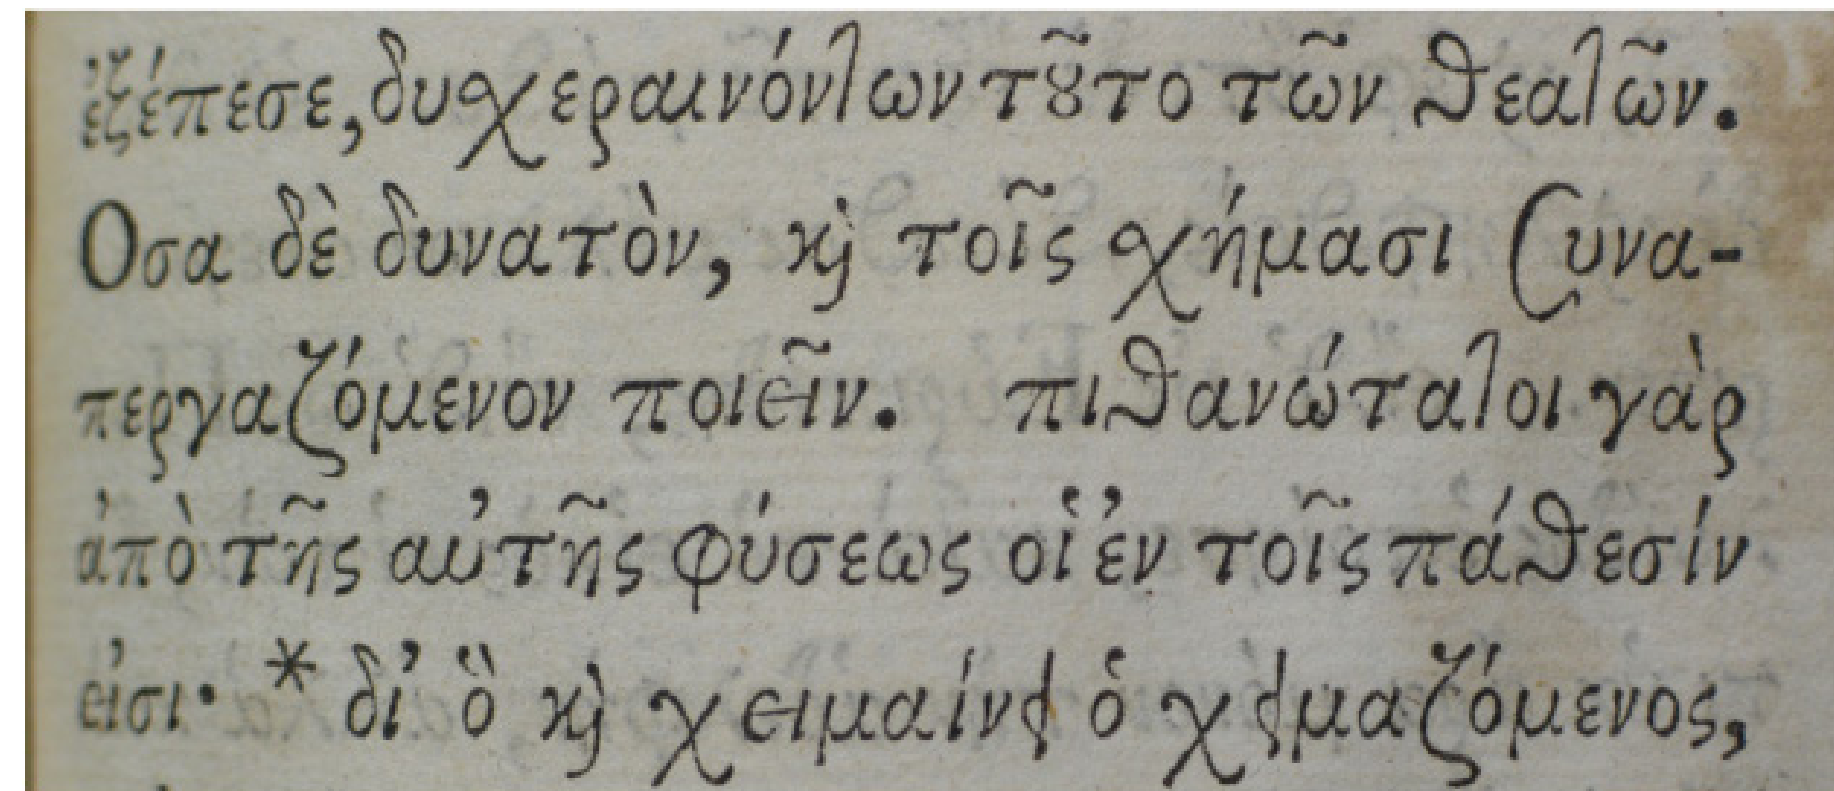 ἐξέπεσε, δυχεραινόντων τȣ͂το τῶν θεατῶν.
Οσα δὲ δυνατὸν, ϗ̀ τοῖς χήμασι συνα-
περγαζόμενον ποιεῖν. πιθανώτατοι γὰρ
ἀπὸ τῆς αὐτῆς φύσεως οἱ ἐν τοῖς πάθεσίν
εἰσι· * δι' ὃ ϗ̀ χειμαίνει ὁ χειμαζόμενος,